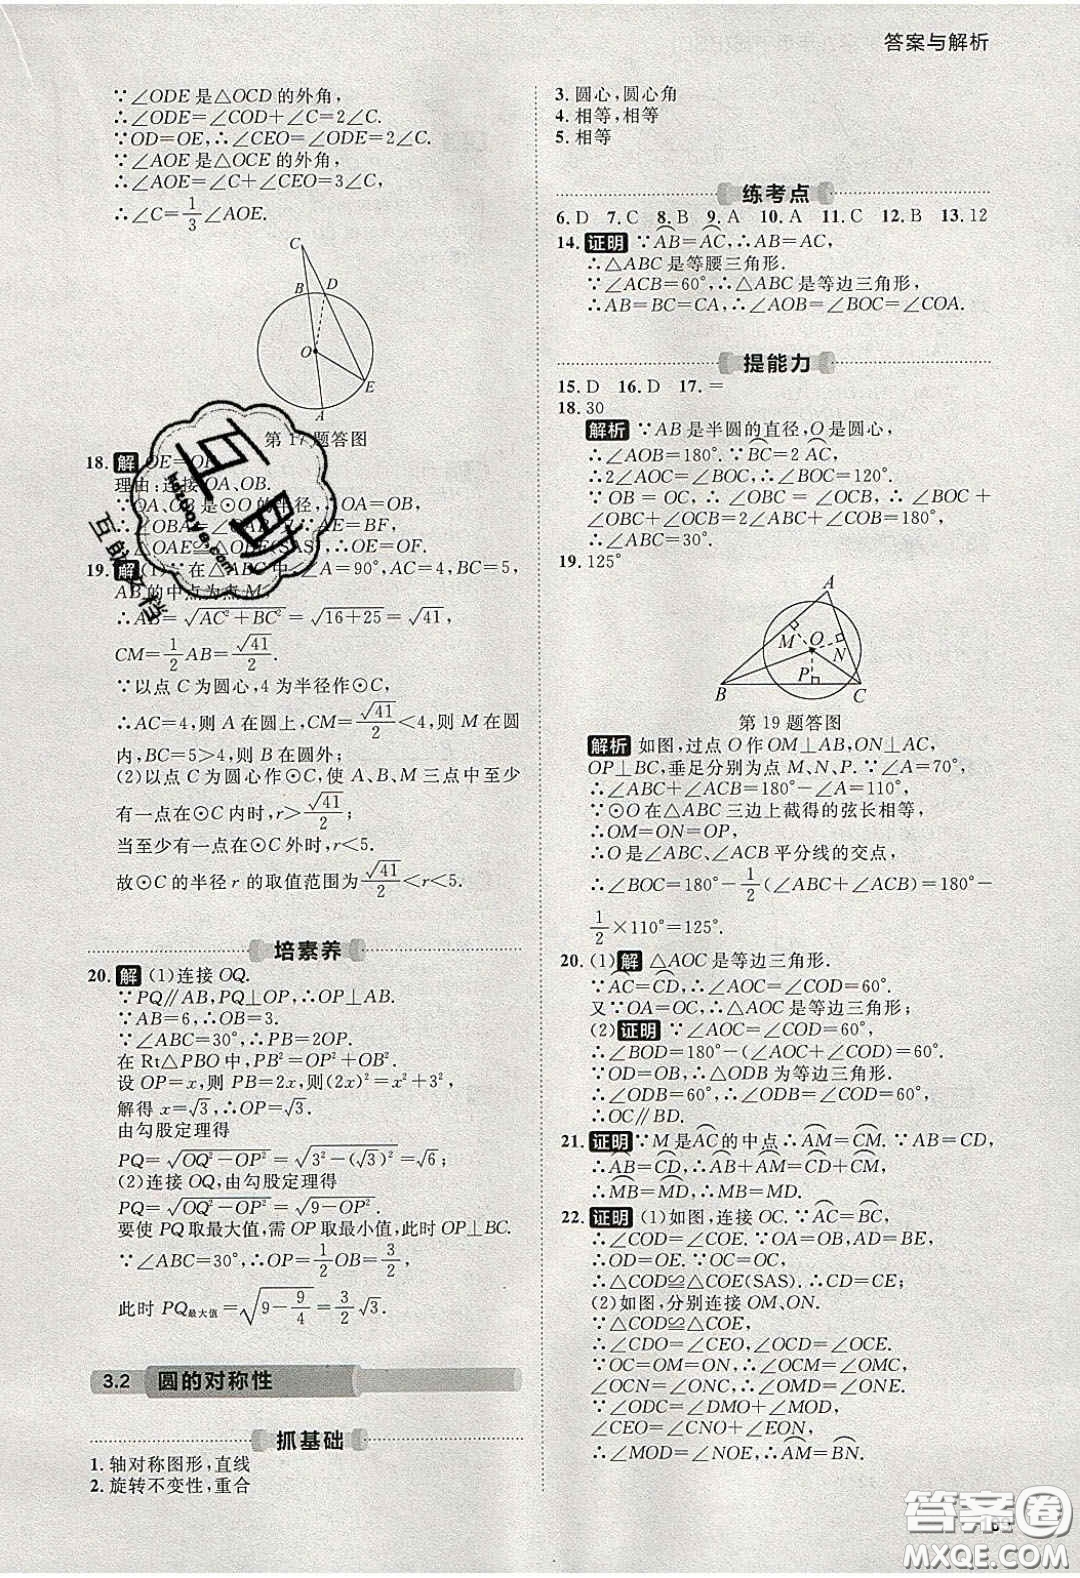 答案与解析
∵∠ODE是△OCD的外角,
∴∠ODE=∠COD+∠C=2∠C.
∵OD=OE,∴∠CEO=∠ODE=2∠C.
∵∠AOE是△OCE的外角,
∴∠AOE=∠C+∠CEO=3∠C.
∴∠C=1/3∠AOE.
C
B D
O
E
A
第17题答图
18. 解 OE=OF.
理由:连接OA、OB.
∵OA、OB是⊙O的半径,∴OA=OB.
∴∠OBA=∠OAB.又∵AE=BF,
∴△OAE≌△OBF(SAS).∴OE=OF.
19. 解 (1)∵在△ABC中,∠A=90°,AC=4,BC=5,
AB的中点为点M,
∴AB=√(AC²+BC²)=√(16+25)=√41,
CM=1/2AB=√41/2.
∵以点C为圆心,4为半径作⊙C,
∴AC=4,则A在圆上,CM=√41/2<4,则M在圆
内,BC=5>4,则B在圆外;
(2)以点C为圆心作⊙C,使A、B、M三点中至少
有一点在⊙C内时,r>√41/2;
当至少有一点在⊙C外时,r<5.
故⊙C的半径r的取值范围为√41/2<r<5.
培素养
20. 解 (1)连接OQ.
∵PQ∥AB,PQ⊥OP,∴OP⊥AB.
∵AB=6,∴OB=3.
∵∠ABC=30°,∴PB=2OP.
在Rt△PBO中,PB²=OP²+OB².
设OP=x,则PB=2x,则(2x)²=x²+3²,
解得x=√3,∴OP=√3.
由勾股定理得
PQ=√(OQ²-OP²)=√(3²-(√3)²)=√6;
(2)连接OQ,由勾股定理得
PQ=√(OQ²-OP²)=√(9-OP²).
要使PQ取最大值,需OP取最小值,此时OP⊥BC.
∵∠ABC=30°,∴OP=1/2OB=3/2,
此时PQ最大值=√(9-9/4)=3/2√3.
3.2 圆的对称性
抓基础
1. 轴对称图形,直线
2. 旋转不变性,重合
3. 圆心,圆心角
4. 相等,相等
5. 相等
练考点
6. D 7. C 8. B 9. A 10. A 11. C 12. B 13. 12
14. 证明 ∵AB=AC,∴AB=AC,
∴△ABC是等腰三角形.
∵∠ACB=60°,∴△ABC是等边三角形,
∴AB=BC=CA,∴∠AOB=∠BOC=∠COA.
提能力
15. D 16. D 17. =
18. 30
解析 ∵AB是半圆的直径,O是圆心,
∴∠AOB=180°.∵BC=2AC,
∴2∠AOC=∠BOC,∴∠BOC=120°.
∵OB=OC,∴∠OBC=∠OCB,∠OBC+
∠OBC+∠OCB=2∠OBC+∠BOC=180°,
∴∠ABC=30°.
19. 125°
A
M O
N
P
B C
第19题答图
解析 如图,过点O作OM⊥AB,ON⊥AC,
OP⊥BC,垂足分别为点M、N、P.∵∠A=70°,
∴∠ABC+∠ACB=180°-∠A=110°,
∵⊙O在△ABC三边上截得的弦长相等,
∴OM=ON=OP,
∴O是∠ABC、∠ACB平分线的交点,
∴∠BOC=180°-1/2(∠ABC+∠ACB)=180°-
1/2×110°=125°.
20. (1) 解 △AOC是等边三角形.
∵AC=CD,∴∠AOC=∠COD=60°.
又∵OA=OC,∴△AOC是等边三角形;
(2) 证明 ∵∠AOC=∠COD=60°,
∴∠BOD=180°-(∠AOC+∠COD)=60°.
∵OD=OB,∴△ODB为等边三角形.
∴∠ODB=60°,∴∠COD=∠ODB=60°,
∴OC∥BD.
21. 证明 ∵M是AC的中点∴AM=CM.∵AB=CD,
∴AB=CD,∴AB+AM=CD+CM,
∴MB=MD,∴MB=MD.
22. 证明 (1)如图,连接OC.∵AC=BC,
∴∠COD=∠COE.∵OA=OB,AD=BE,
∴OD=OE.∵OC=OC,
∴△COD≌△COE(SAS).∴CD=CE;
(2)如图,分别连接OM、ON.
∵△COD≌△COE,
∴∠CDO=∠CEO,∠OCD=∠OCE.
∵OC=OM=ON,∴∠OCM=∠OMC,
∠OCN=∠ONC,∴∠OMD=∠ONE.
∵∠ODC=∠DMO+∠MOD,
∠CEO=∠CNO+∠EON,
∴∠MOD=∠NOE,∴AM=BN.
互助
huzuoye.com
互助文档
答案圈
MXQE.COM